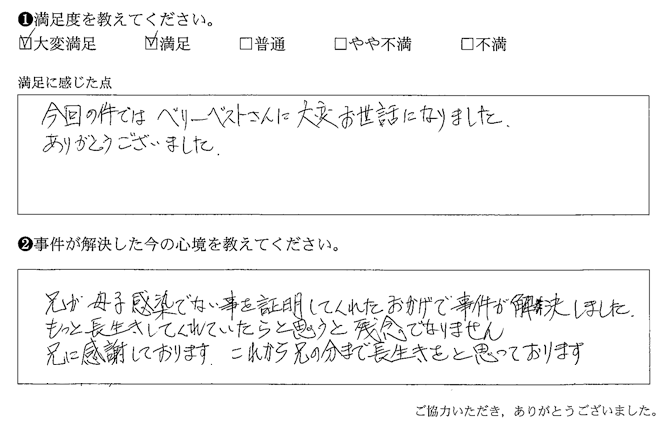 ❶満足度を教えてください。
☑大変満足 ☑満足 □普通 □やや不満 □不満
満足に感じた点
今回の件では ベリーベストさんに 大変お世話になりました.
ありがとうございました.
❷事件が解決した今の心境を教えてください。
兄が 母子感染でない事を証明してくれた おかげで事件が解決しました.
もっと長生きしてくれていたらと思うと 残念でなりません
兄に感謝しております. これから兄の分まで長生きをと思っております
ご協力いただき，ありがとうございました。